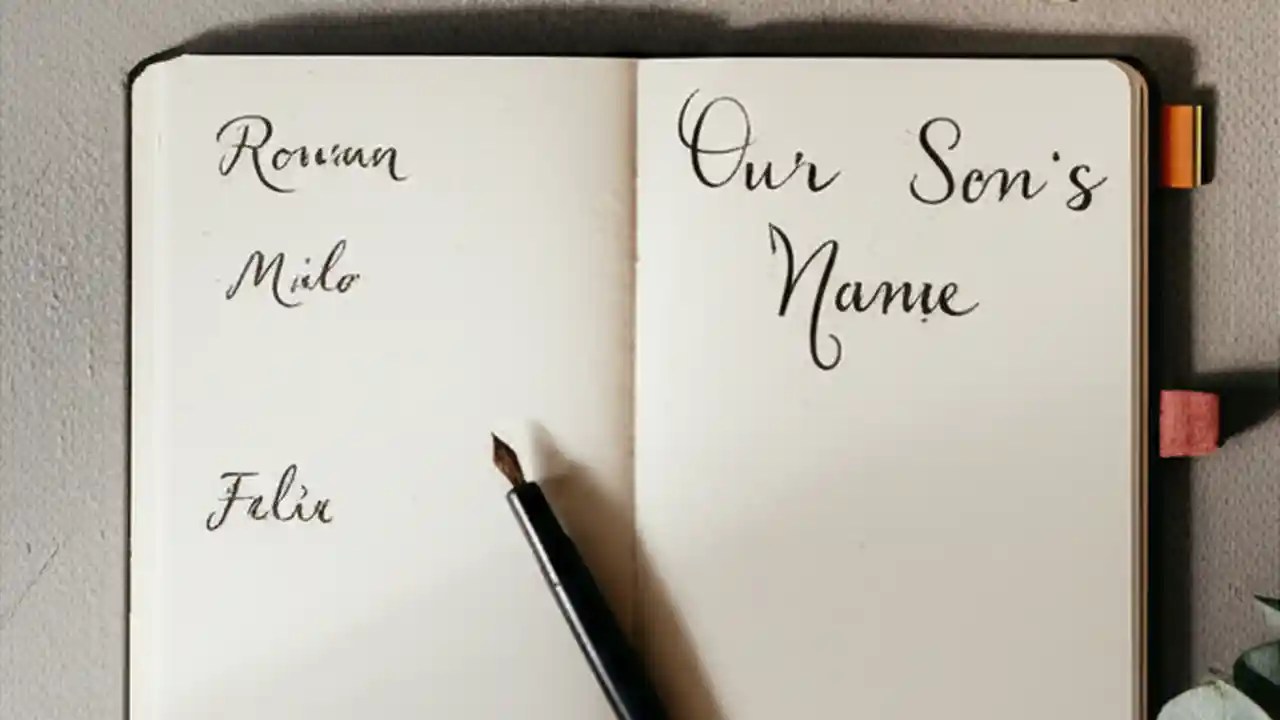 Rowan
Milo
Felix
Our Son's
Name